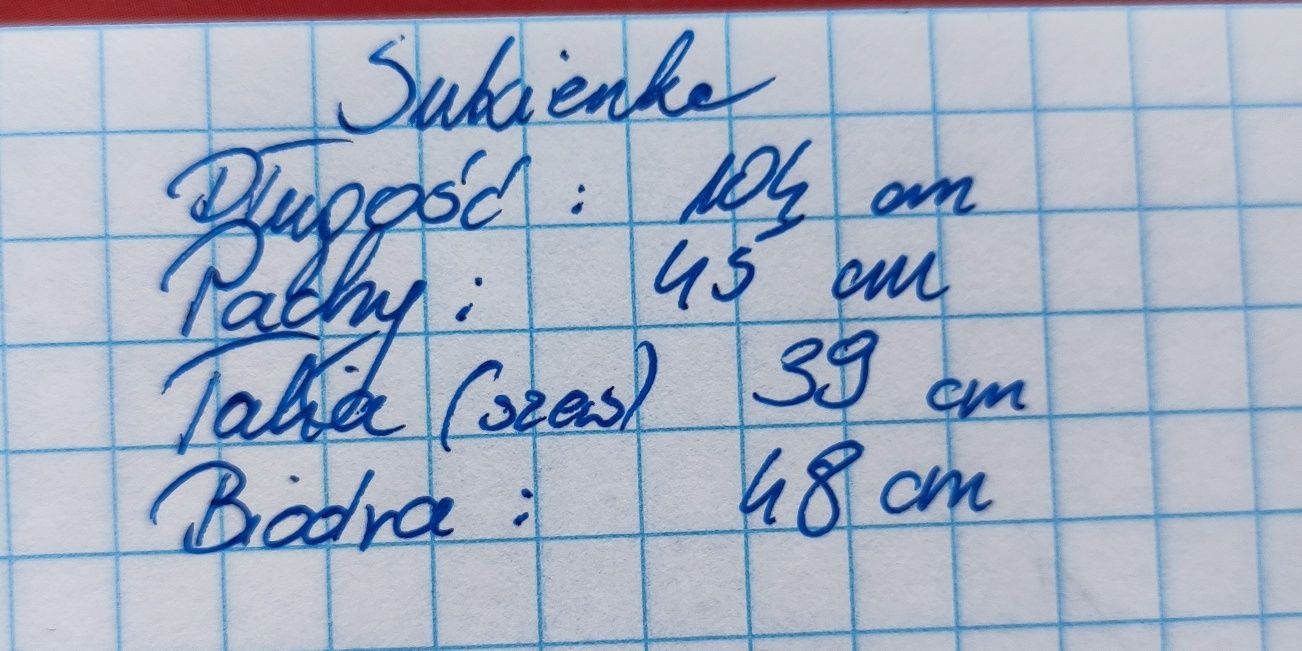 Sukienka
Długość : 104 cm
Pachy : 45 cm
Talia (szew) 39 cm
Biodra : 48 cm